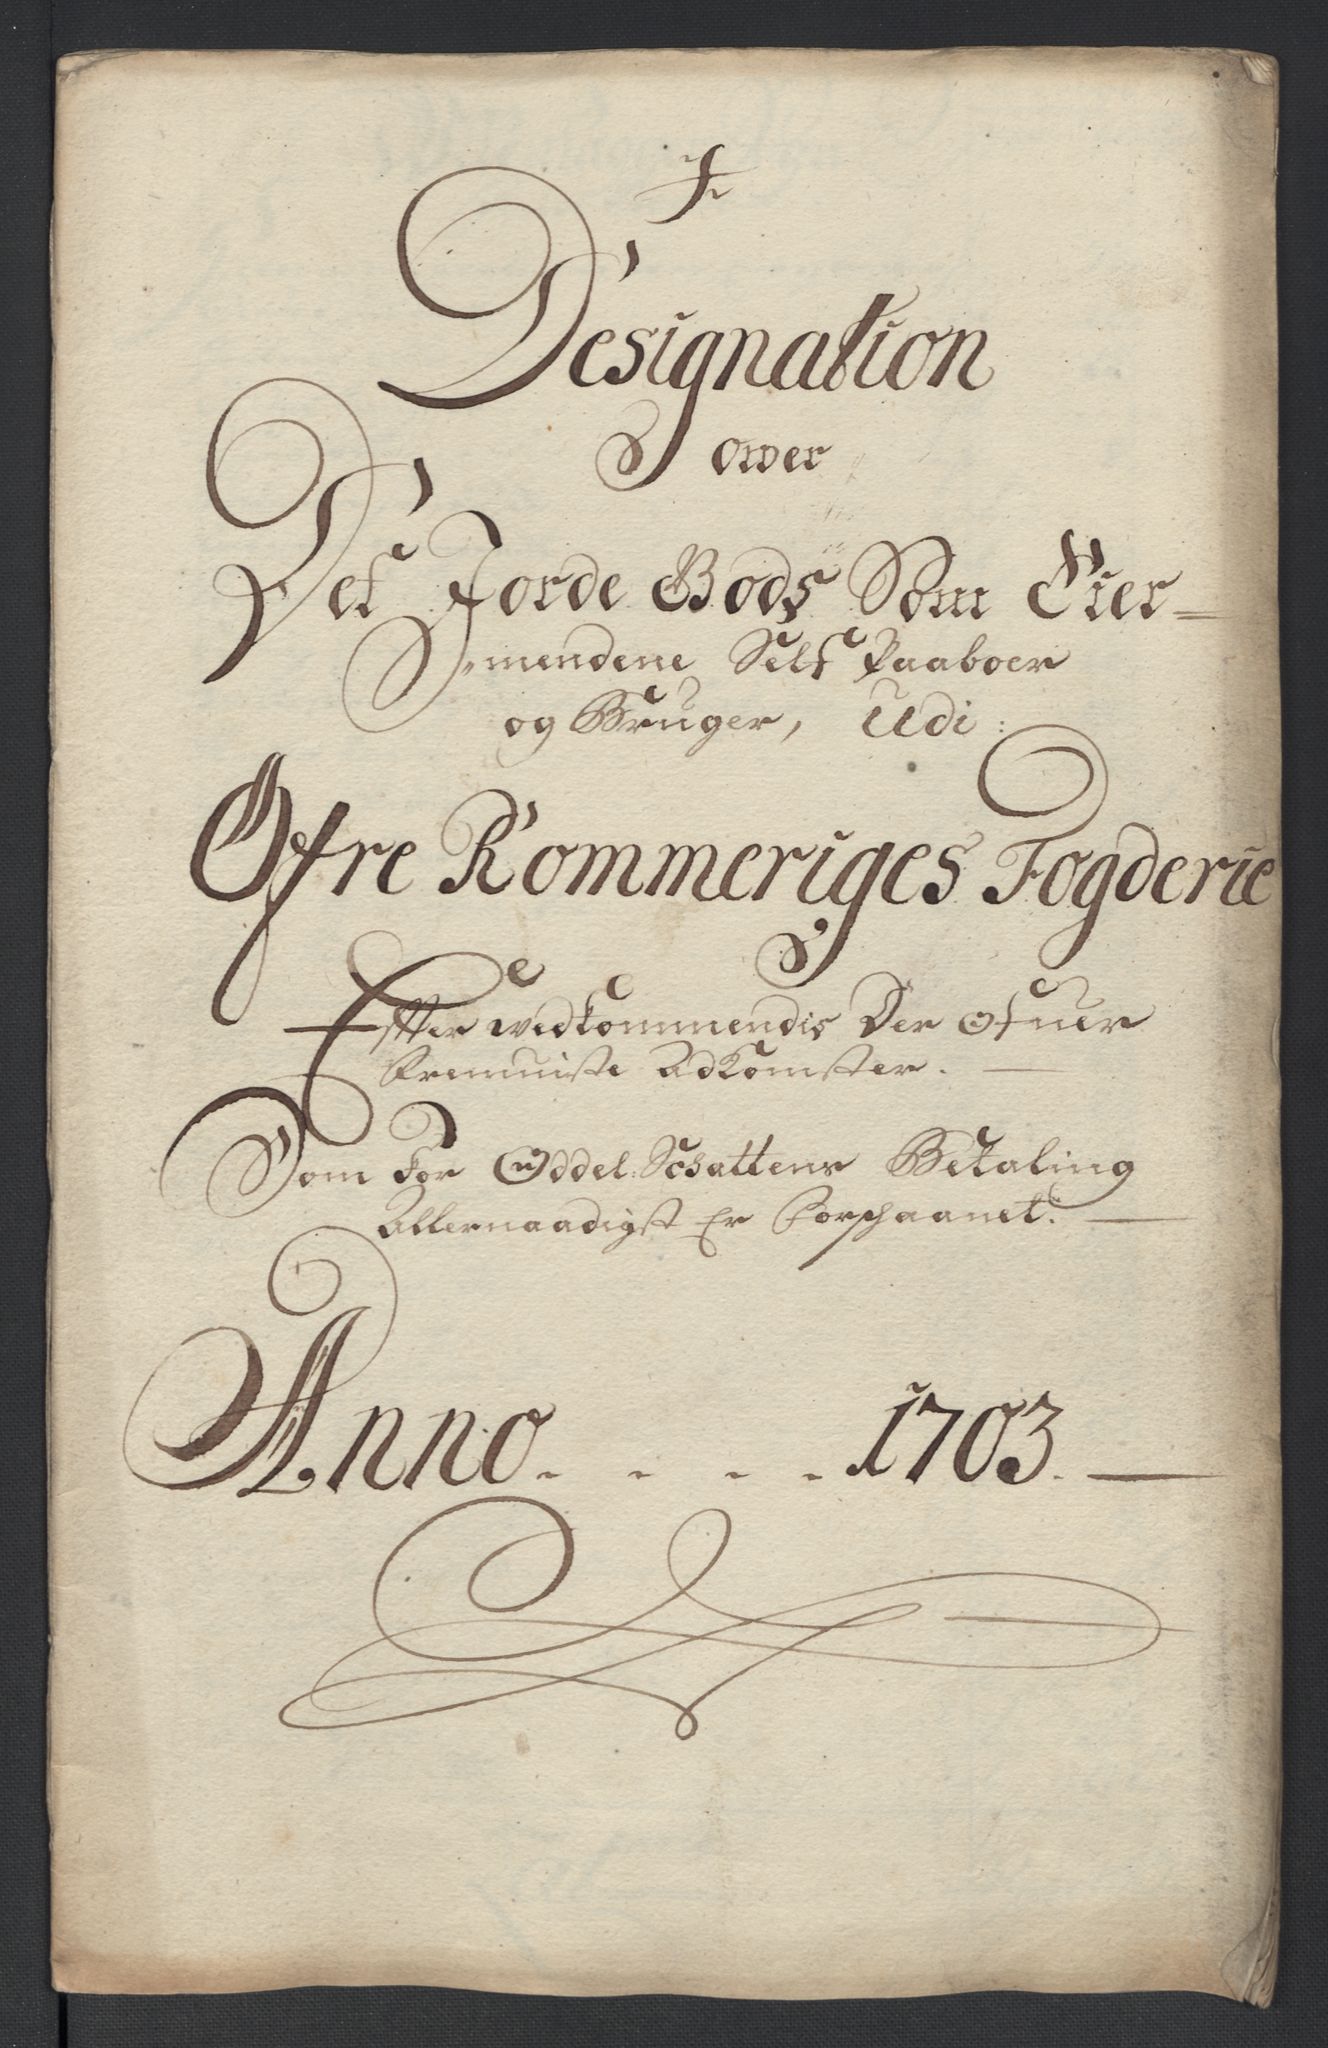 Designation
over
Det Jorde Gods Som Eier-
mendene Self Paaboer
og Bruger, Udi:
Øfre Rommeriges Fogderie
Efter wedkommendis Der ofuer
fremuiste adkomster.
Som for Oddel Schattens Betaling
Allernaadigst Er forschaanet.
Anno . . . . 1703.